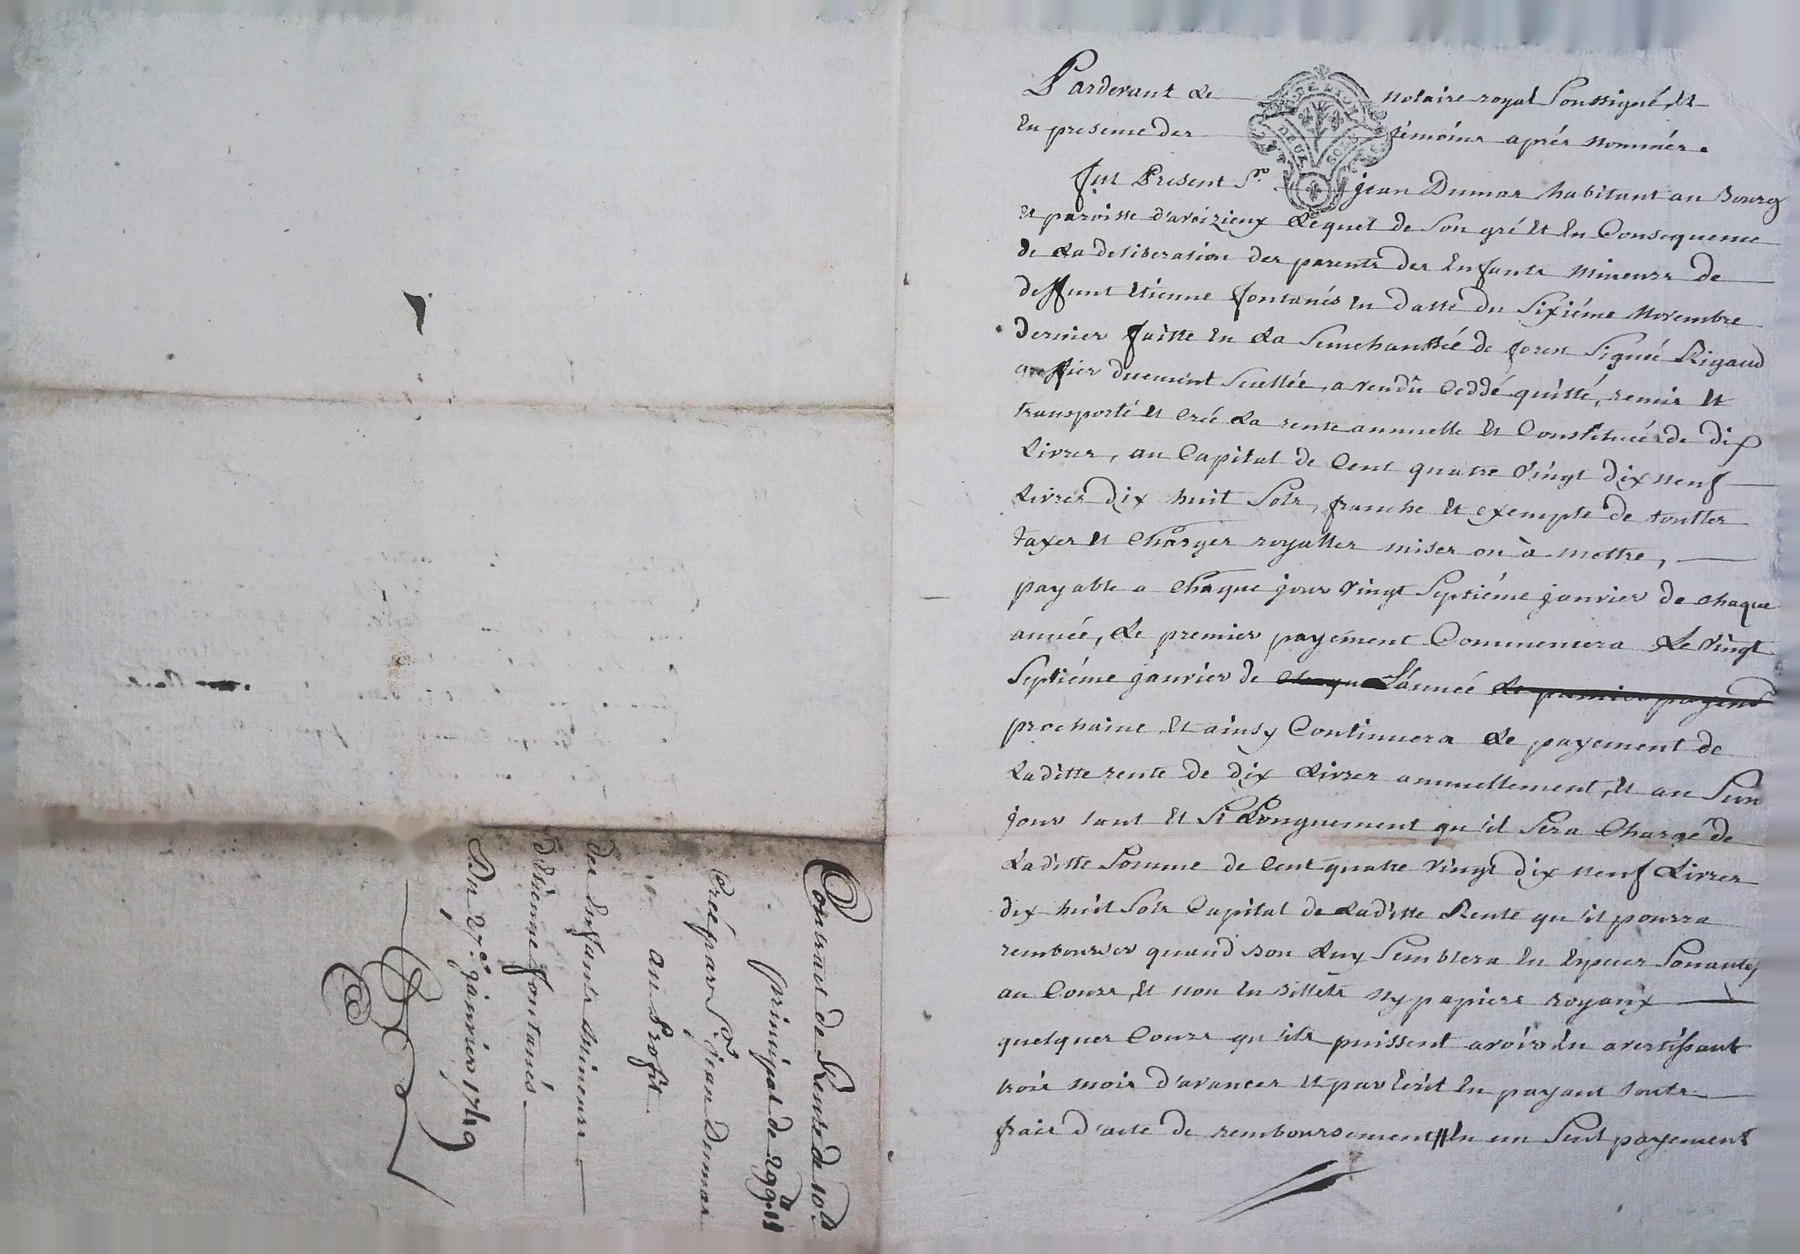 Pardevant Le notaire royal Soussigné, Et
En presence des témoins aprés nommés.
fut Present Sr. jean Dumas habitant au Bourg
Et paroisse d'avéizieux Lequel de Son gré Et En Consequence
de La deliberation des parents des Enfants mineurs de
deffunt Etienne fontanés En datte du Sixiéme Novembre
dernier faitte En La Senechaussée de forest Signée Rigaud
greffier duement Scellée, a vendû Ceddé quitté, remis Et
transporté Et Créé La rente annuelle Et Constituée de dix
Livres, au Capital de Cent quatre Vingt dix neuf
Livres dix huit Sols, franche Et exempte de touttes
taxes Et Charges royalles mises ou à mettre,
payable a Chaque jour Vingt Septiéme janvier de chaque
année, Le premier payement Commencera Le Vingt
Septiéme janvier de chaque L'année Le premier payemt
prochaine Et ainsy Continuera Le payement de
Laditte rente de dix Livres annuellement, Et au Sun
jour tant Et Si Longuement qu'il Sera Chargé de
Laditte Somme de Cent quatre Vingt dix neuf Livres
dix huit Sols Capital de Laditte Rente qu'il pourra
rembourser quand bon Luy Semblera En Especes Sonantes
au Cours, Et non En billets Ny papiers royaux
quelques Cours qu'ils puissent avoir En avertissant
trois mois d'avances Et par Ecrit En payant touts
frais d'acte de remboursement En un Seul payement
Contract de Rente de 10 lt
principal de 199 lt 18
Créé par Sr. jean Dumas
au Profit
des Enfants mineurs
d'Etienne fontanés.
Du 27e. janvier 1749
DEUX SOLS